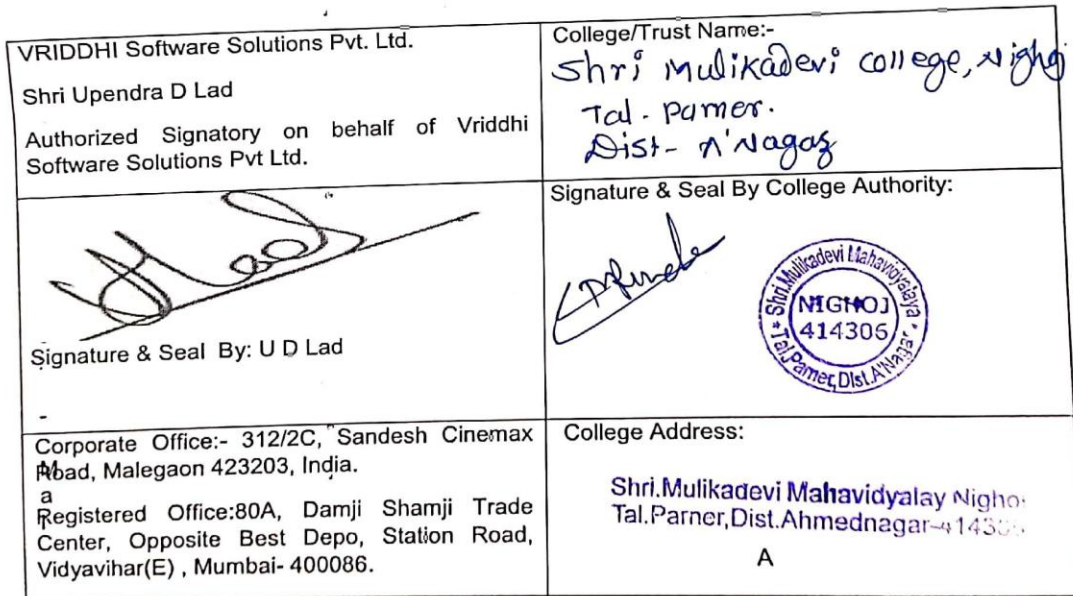 VRIDDHI Software Solutions Pvt. Ltd.
Shri Upendra D Lad
Authorized Signatory on behalf of Vriddhi
Software Solutions Pvt Ltd.
College/Trust Name:-
Shri Mulikadevi college, Nighoj
Tal. Parner.
Dist- A'Nagar
Signature & Seal By: U D Lad
Signature & Seal By College Authority:
Shri.Mulikadevi Mahavidyalaya
NIGHOJ
414306
* Tal.Parner,Dist.A'Nagar *
Corporate Office:- 312/2C, Sandesh Cinemax
Road, Malegaon 423203, India.
M
a
Registered Office:80A, Damji Shamji Trade
Center, Opposite Best Depo, Station Road,
Vidyavihar(E) , Mumbai- 400086.
College Address:
Shri.Mulikadevi Mahavidyalay Nigho
Tal.Parner,Dist.Ahmednagar-4143
A